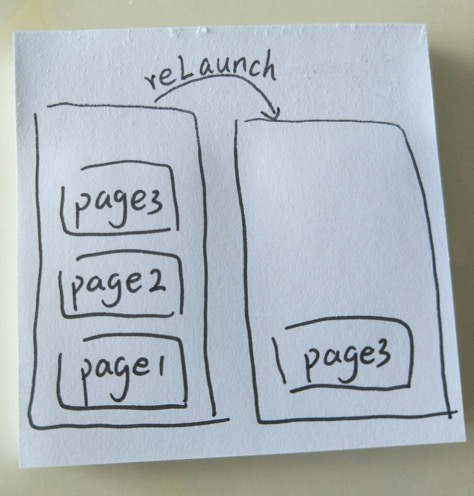 reLaunch
page3
page2
page1
page3